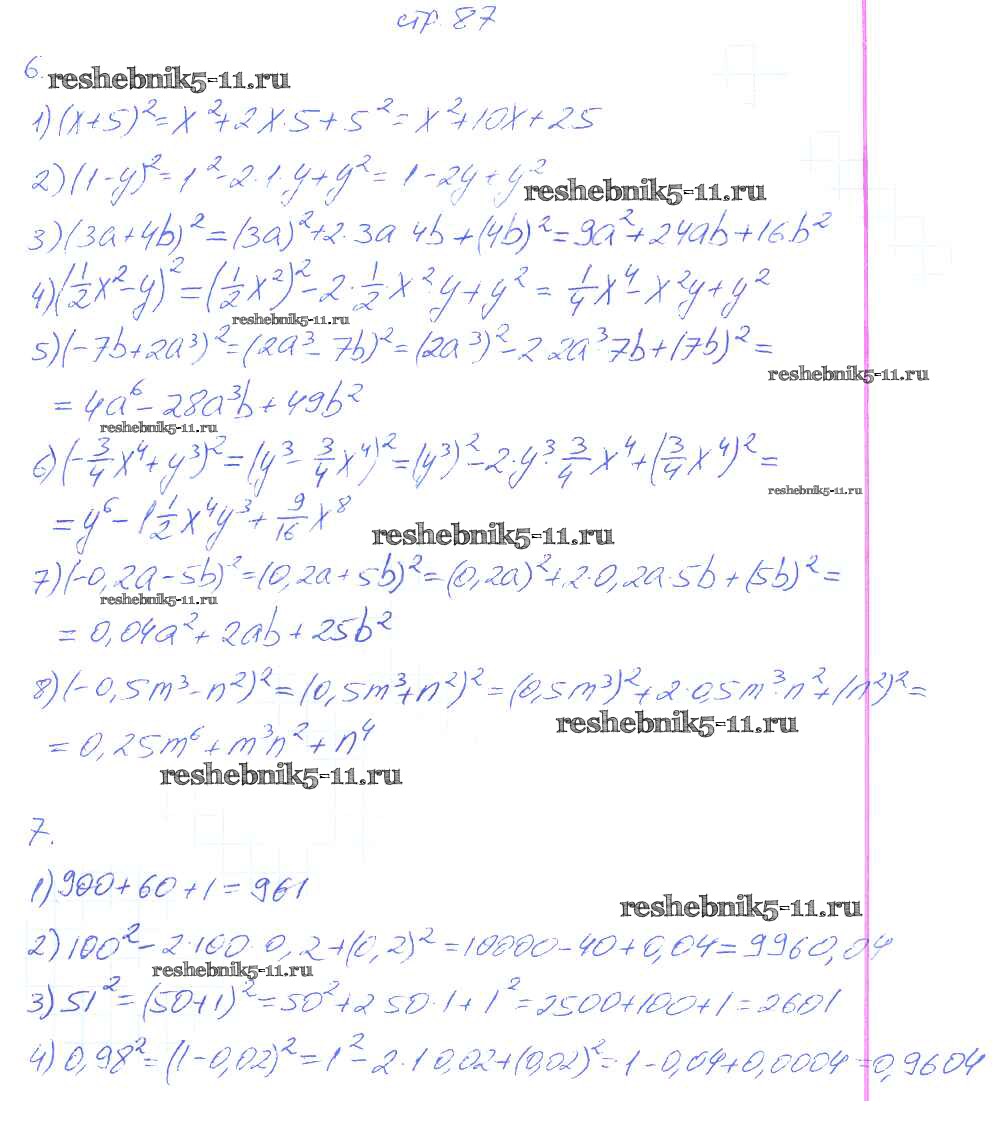 стр. 87
6.
reshebnik5-11.ru
1) (x+5)² = x² + 2x·5 + 5² = x² + 10x + 25
2) (1-y)² = 1² - 2·1·y + y² = 1 - 2y + y²
reshebnik5-11.ru
3) (3a+4b)² = (3a)² + 2·3a 4b + (4b)² = 9a² + 24ab + 16b²
4) (1/2x² - y)² = (1/2x²)² - 2·1/2x²·y + y² = 1/4x⁴ - x²y + y²
reshebnik5-11.ru
5) (-7b+2a³)² = (2a³ - 7b)² = (2a³)² - 2·2a³·7b + (7b)² =
reshebnik5-11.ru
= 4a⁶ - 28a³b + 49b²
reshebnik5-11.ru
6) (-3/4x⁴ + y³)² = (y³ - 3/4x⁴)² = (y³)² - 2·y³·3/4x⁴ + (3/4x⁴)² =
reshebnik5-11.ru
= y⁶ - 1 1/2x⁴y³ + 9/16x⁸
reshebnik5-11.ru
7) (-0,2a - 5b)² = (0,2a + 5b)² = (0,2a)² + 2·0,2a·5b + (5b)² =
reshebnik5-11.ru
= 0,04a² + 2ab + 25b²
8) (-0,5m³ - n²)² = (0,5m³ + n²)² = (0,5m³)² + 2·0,5m³·n² + (n²)² =
reshebnik5-11.ru
= 0,25m⁶ + m³n² + n⁴
reshebnik5-11.ru
7.
1) 900 + 60 + 1 = 961
reshebnik5-11.ru
2) 100² - 2·100·0,2 + (0,2)² = 10000 - 40 + 0,04 = 9960,04
reshebnik5-11.ru
3) 51² = (50+1)² = 50² + 2 50·1 + 1² = 2500 + 100 + 1 = 2601
4) 0,98² = (1-0,02)² = 1² - 2·1 0,02 + (0,02)² = 1 - 0,04 + 0,0004 = 0,9604